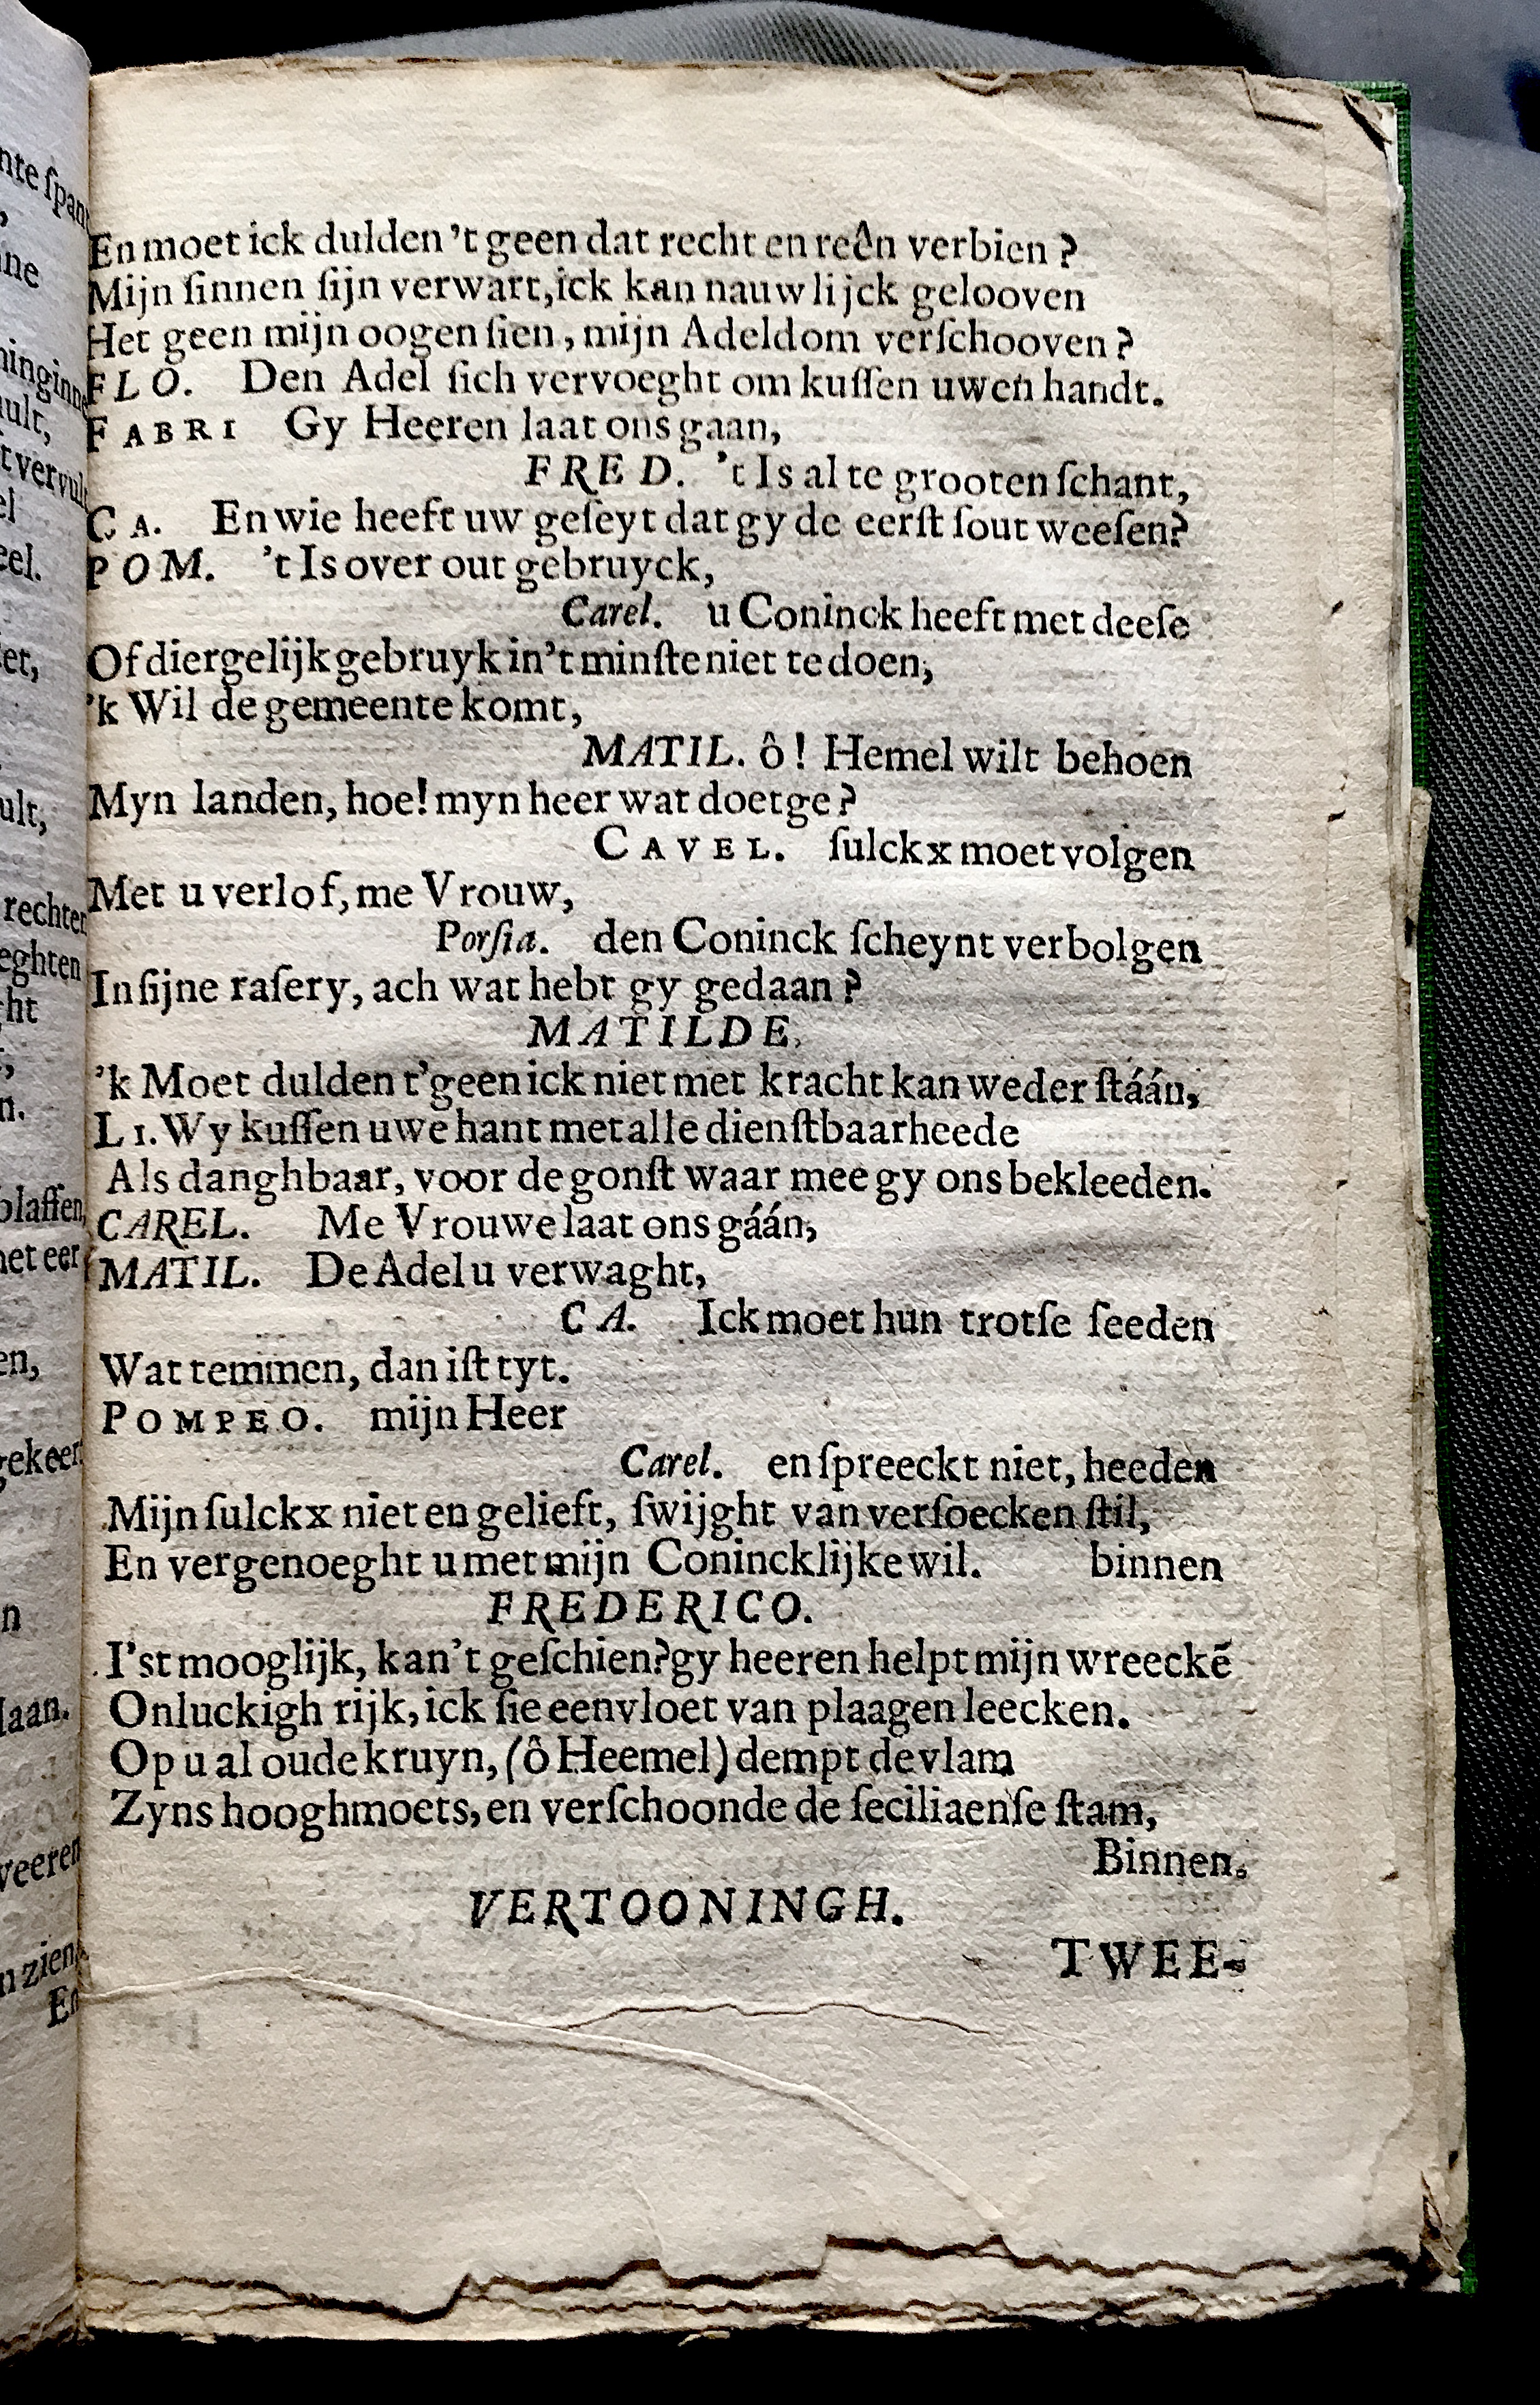 En moet ick dulden 't geen dat recht en reên verbien ?
Mijn ſinnen ſijn verwart, ick kan nauwlijck gelooven
Het geen mijn oogen ſien, mijn Adeldom verſchooven ?
FLO. Den Adel ſich vervoeght om kuſſen uwen handt.
FABRI Gy Heeren laat ons gaan,
FRED. 't Is al te grooten ſchant,
CA. En wie heeft uw geſeyt dat gy de eerſt ſout weeſen?
POM. 't Is over out gebruyck,
Carel. u Coninck heeft met deeſe
Of diergelijk gebruyk in't minſte niet te doen,
'k Wil de gemeente komt,
MATIL. ô! Hemel wilt behoen
Myn landen, hoe! myn heer wat doetge?
CAVEL. ſulckx moet volgen
Met u verlof, me Vrouw,
Porſia. den Coninck ſcheynt verbolgen
In ſijne raſery, ach wat hebt gy gedaan?
MATILDE.
'k Moet dulden t'geen ick niet met kracht kan weder ſtáán,
LI. Wy kuſſen uwe hant met alle dienſtbaarheede
Als danghbaar, voor de gonſt waar mee gy ons bekleeden.
CAREL. Me Vrouwe laat ons gáán,
MATIL. De Adel u verwaght,
CA. Ick moet hun trotſe ſeeden
Wat temmen, dan iſt tyt.
POMPEO. mijn Heer
Carel. en ſpreeckt niet, heeden
Mijn ſulckx niet en gelieft, ſwijght van verſoecken ſtil,
En vergenoeght u met mijn Conincklijke wil. binnen
FREDERICO.
I'st mooglijk, kan't geſchien? gy heeren helpt mijn wreeckẽ
Onluckigh rijk, ick ſie een vloet van plaagen leecken.
Op u al oude kruyn, (ô Heemel) dempt de vlam
Zyns hooghmoets, en verſchoonde de ſeciliaenſe ſtam,
Binnen.
VERTOONINGH.
TWEE-